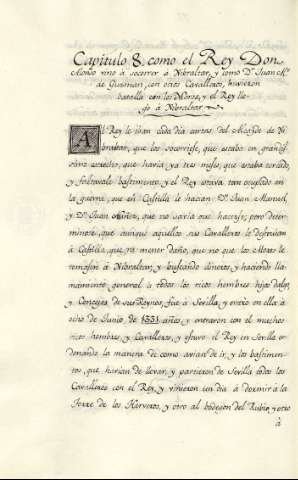 Capitulo 8. como el Rey Don
Alonso vino à socorrer à Gibraltar, y como Dn. Juan Al.
de Guzman, con otros Cavalleros, huvieron
batalla con los Moros, y el Rey lle-
gò à Gibraltar.
Al Rey le ivan cada dia cartas del Alcayde de Gi-
braltar, que los socorriesse, que estaba en grandis-
simo estrecho, que havia ya tres meses, que estaba cercado,
y faltavale bastimento, y el Rey estava tan ocupado en
la guerra, que en Castilla le hacian Dn. Juan Manuel,
y Dn. Juan Nuñez, que no savia que hacerse; pero deter-
minose, que aunque aquellos sus Cavalleros le destruian
à Castilla, que era menor daño, que no que los Moros le
tomassen à Gibraltar, y buscando dineros, y haciendo lla-
mamiento general à todos los ricos hombres hijos dalgo,
y Concejos de sus Reynos, fue à Sevilla, y entrò en ella à
ocho de Junio, de 1331 años, y entraron con el muchos
ricos hombres, y Cavalleros, y estuvo el Rey en Sevilla or-
denando la manera de como avian de ir, y los bastimen-
tos, que havian de llevar, y partieron de Sevilla todos los
Cavalleros con el Rey, y vinieron un dia à dormir à la
Torre de los Herveros, y otro al bodegon del Rubio, y otro
à